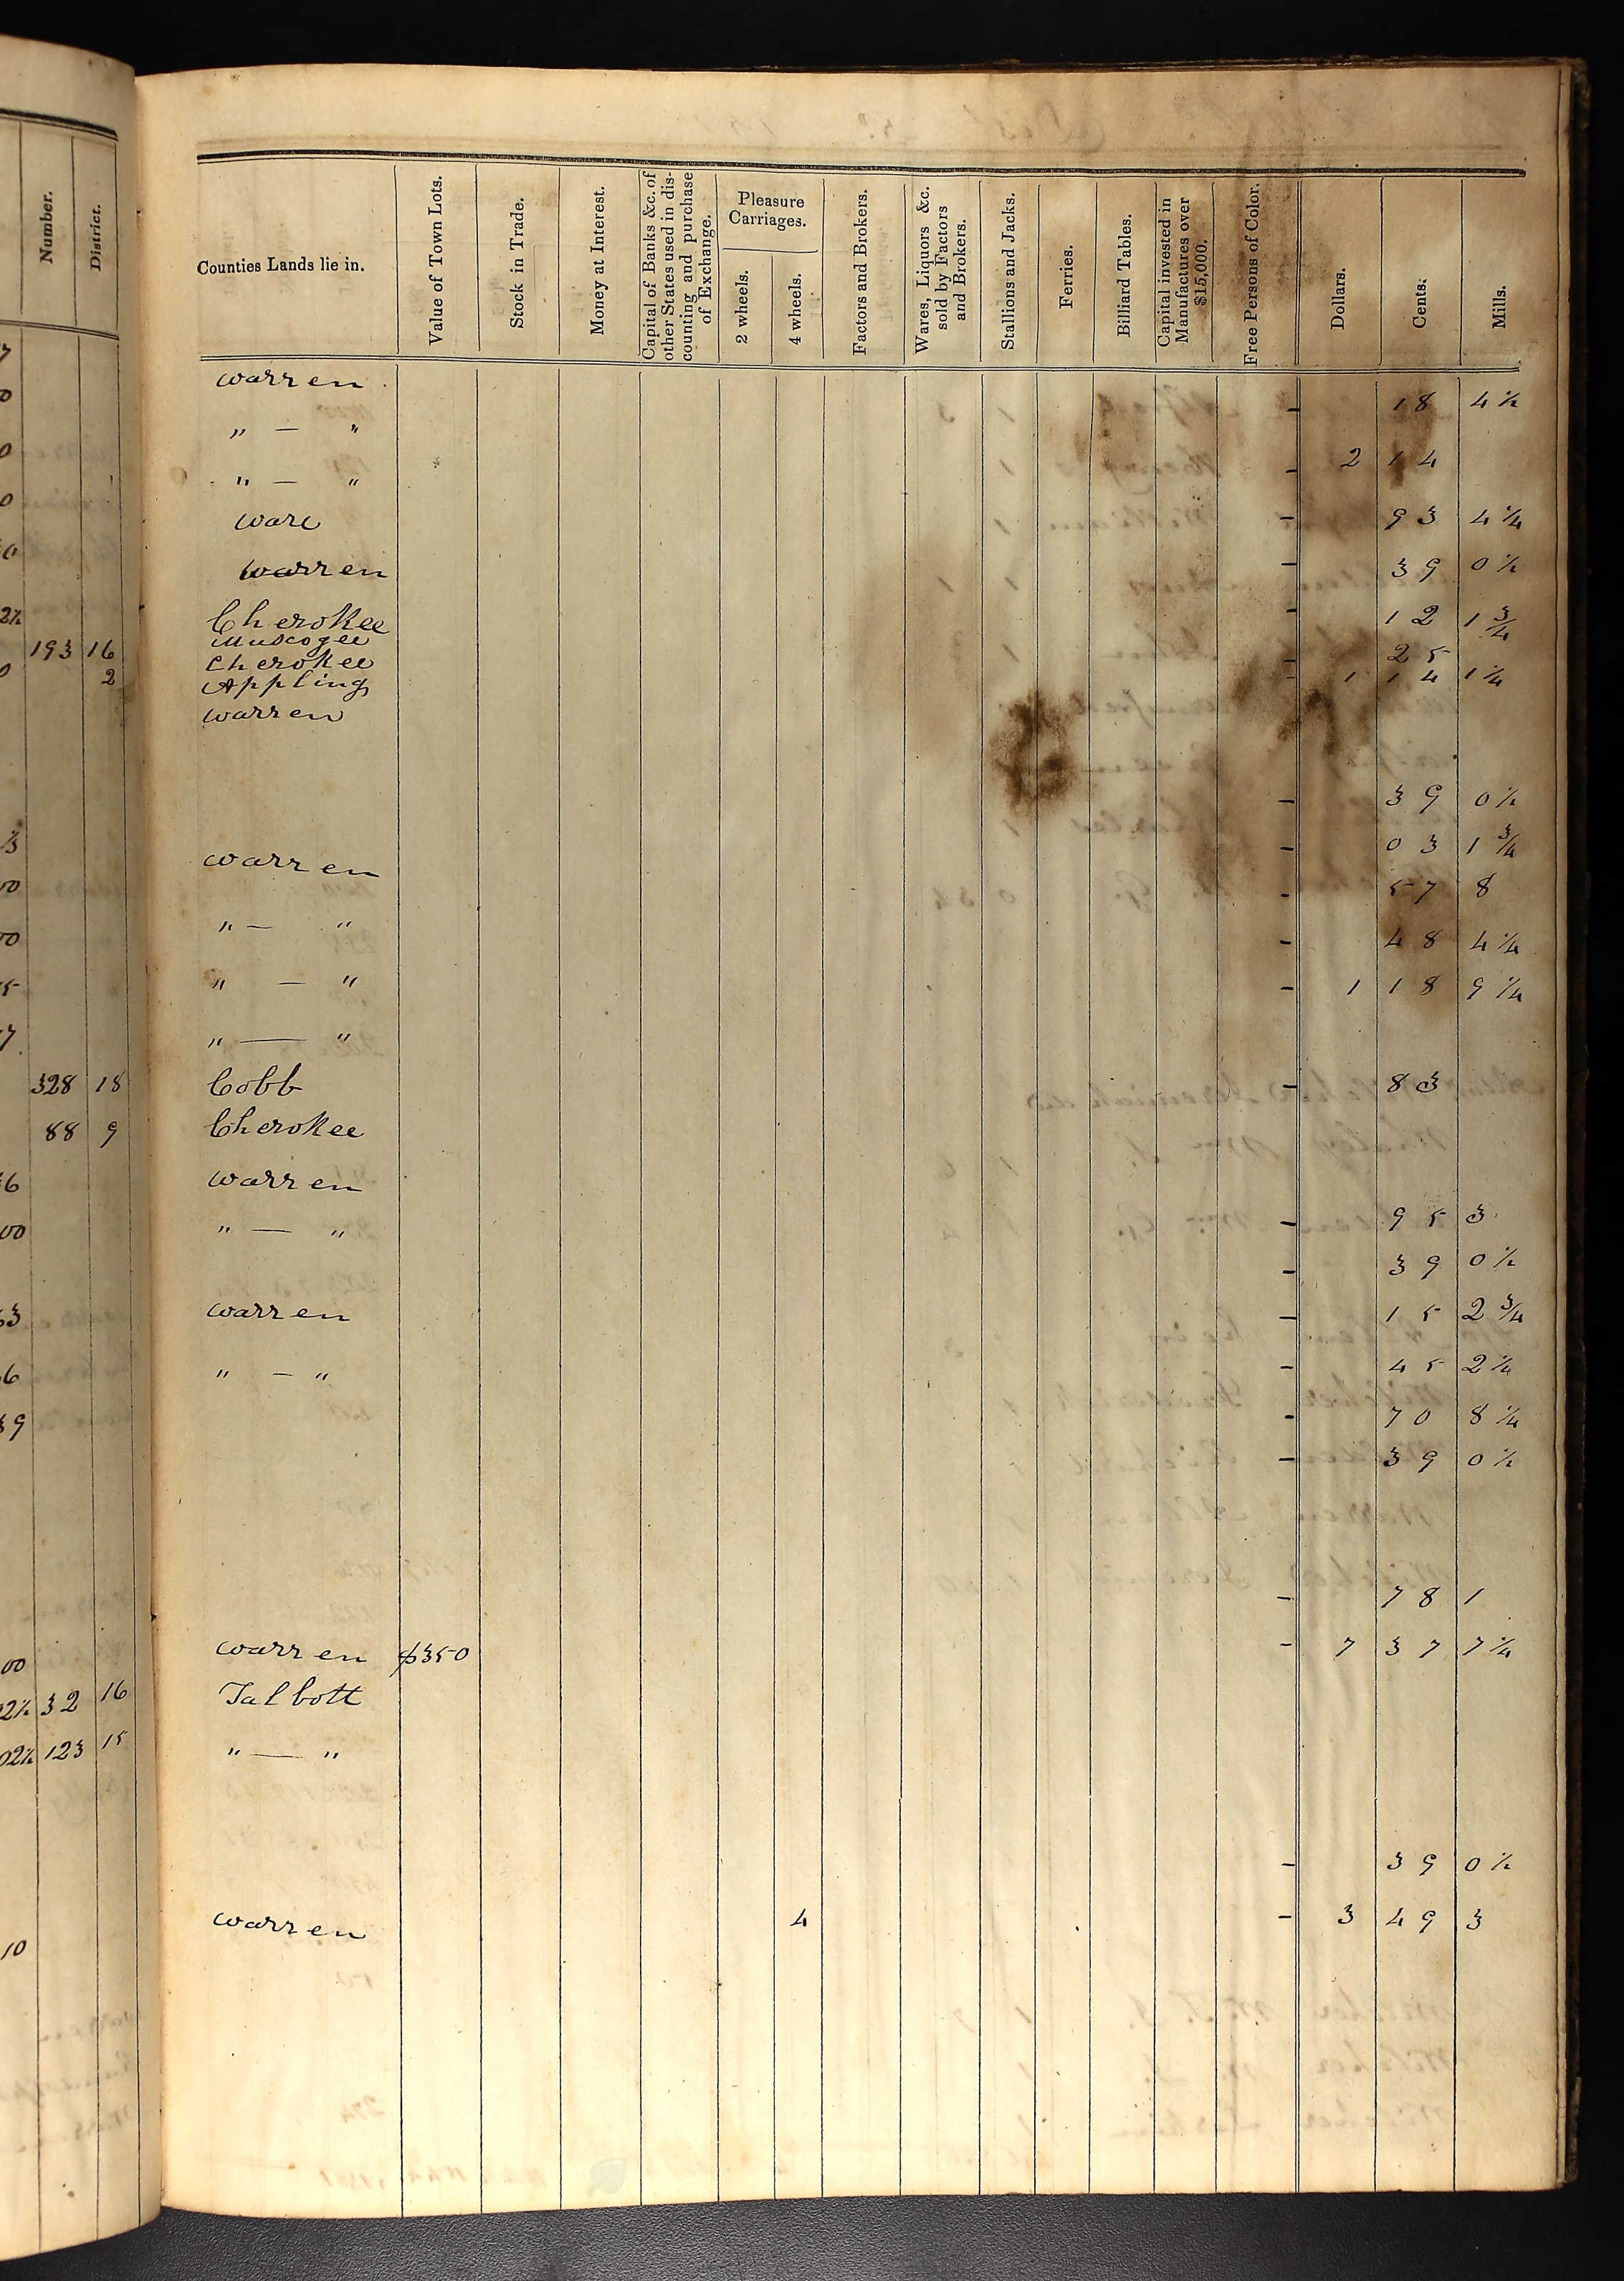 Number. District. Counties Lands lie in. Value of Town Lots. Stock in Trade. Money at Interest. Capital of Banks &c. of other States used in discounting and purchase of Exchange. Pleasure Carriages. 2 wheels. 4 wheels. Factors and Brokers. Wares, Liquors &c. sold by Factors and Brokers. Stallions and Jacks. Ferries. Billiard Tables. Capital invested in Manufactures over $15,000. Free Persons of Color. Dollars. Cents. Mills.
Warren
– 18 4½
" — "
– 2 14
" — "
Ware – 93 4¼
Warren – 39 0½
Cherokee – 12 1¾
193 16 Muscogee
Cherokee – 25
2 Appling – 1 14 1¼
Warren
– 39 0½
– 03 1¾
Warren
– 57 8
" — "
– 48 4¼
" — " – 1 18 9¼
" — "
328 18 Cobb – 83
88 9 Cherokee
Warren
" — " – 95 3
– 39 0½
Warren – 15 2¾
" — " – 45 2¼
– 70 8¼
– 39 0½
– 78 1
Warren $350 – 7 37 7¼
32 16 Talbott
123 15 " — "
– 39 0½
Warren 4 – 3 49 3
10